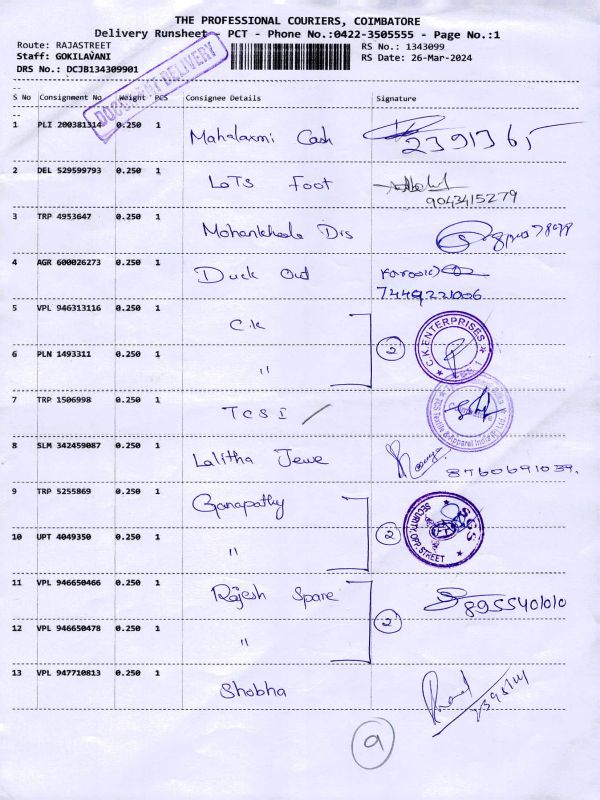 THE PROFESSIONAL COURIERS, COIMBATORE
Delivery Runsheet - PCT - Phone No.:0422-3505555 - Page No.:1
Route: RAJASTREET RS No.: 1343099
Staff: GOKILAVANI RS Date: 26-Mar-2024
DRS No.: DCJB134309901
DOCUMENT DELIVERY
S No Consignment No Weight PCS Consignee Details Signature
1 PLI 200381314 0.250 1 Mahalaxmi Cash 2391365
2 DEL 529599793 0.250 1 LoTS Foot
9043415279
3 TRP 4953647 0.250 1 Drs
4 AGR 600026273 0.250 1 Duck Out
7449221006
5 VPL 946313116 0.250 1 C.K
2 C.K.ENTERPRISES
6 PLN 1493311 0.250 1 "
7 TRP 1506998 0.250 1 TCSI
Apparel India
8 SLM 342459087 0.250 1 Lalitha Jewe 8760691039.
9 TRP 5255869 0.250 1 Ganapathy
2 SECURITY, OPP. STREET
10 UPT 4049350 0.250 1 "
11 VPL 946650466 0.250 1 Rajesh Spare 8955401010
2
12 VPL 946650478 0.250 1 "
13 VPL 947710813 0.250 1 Shobha
9